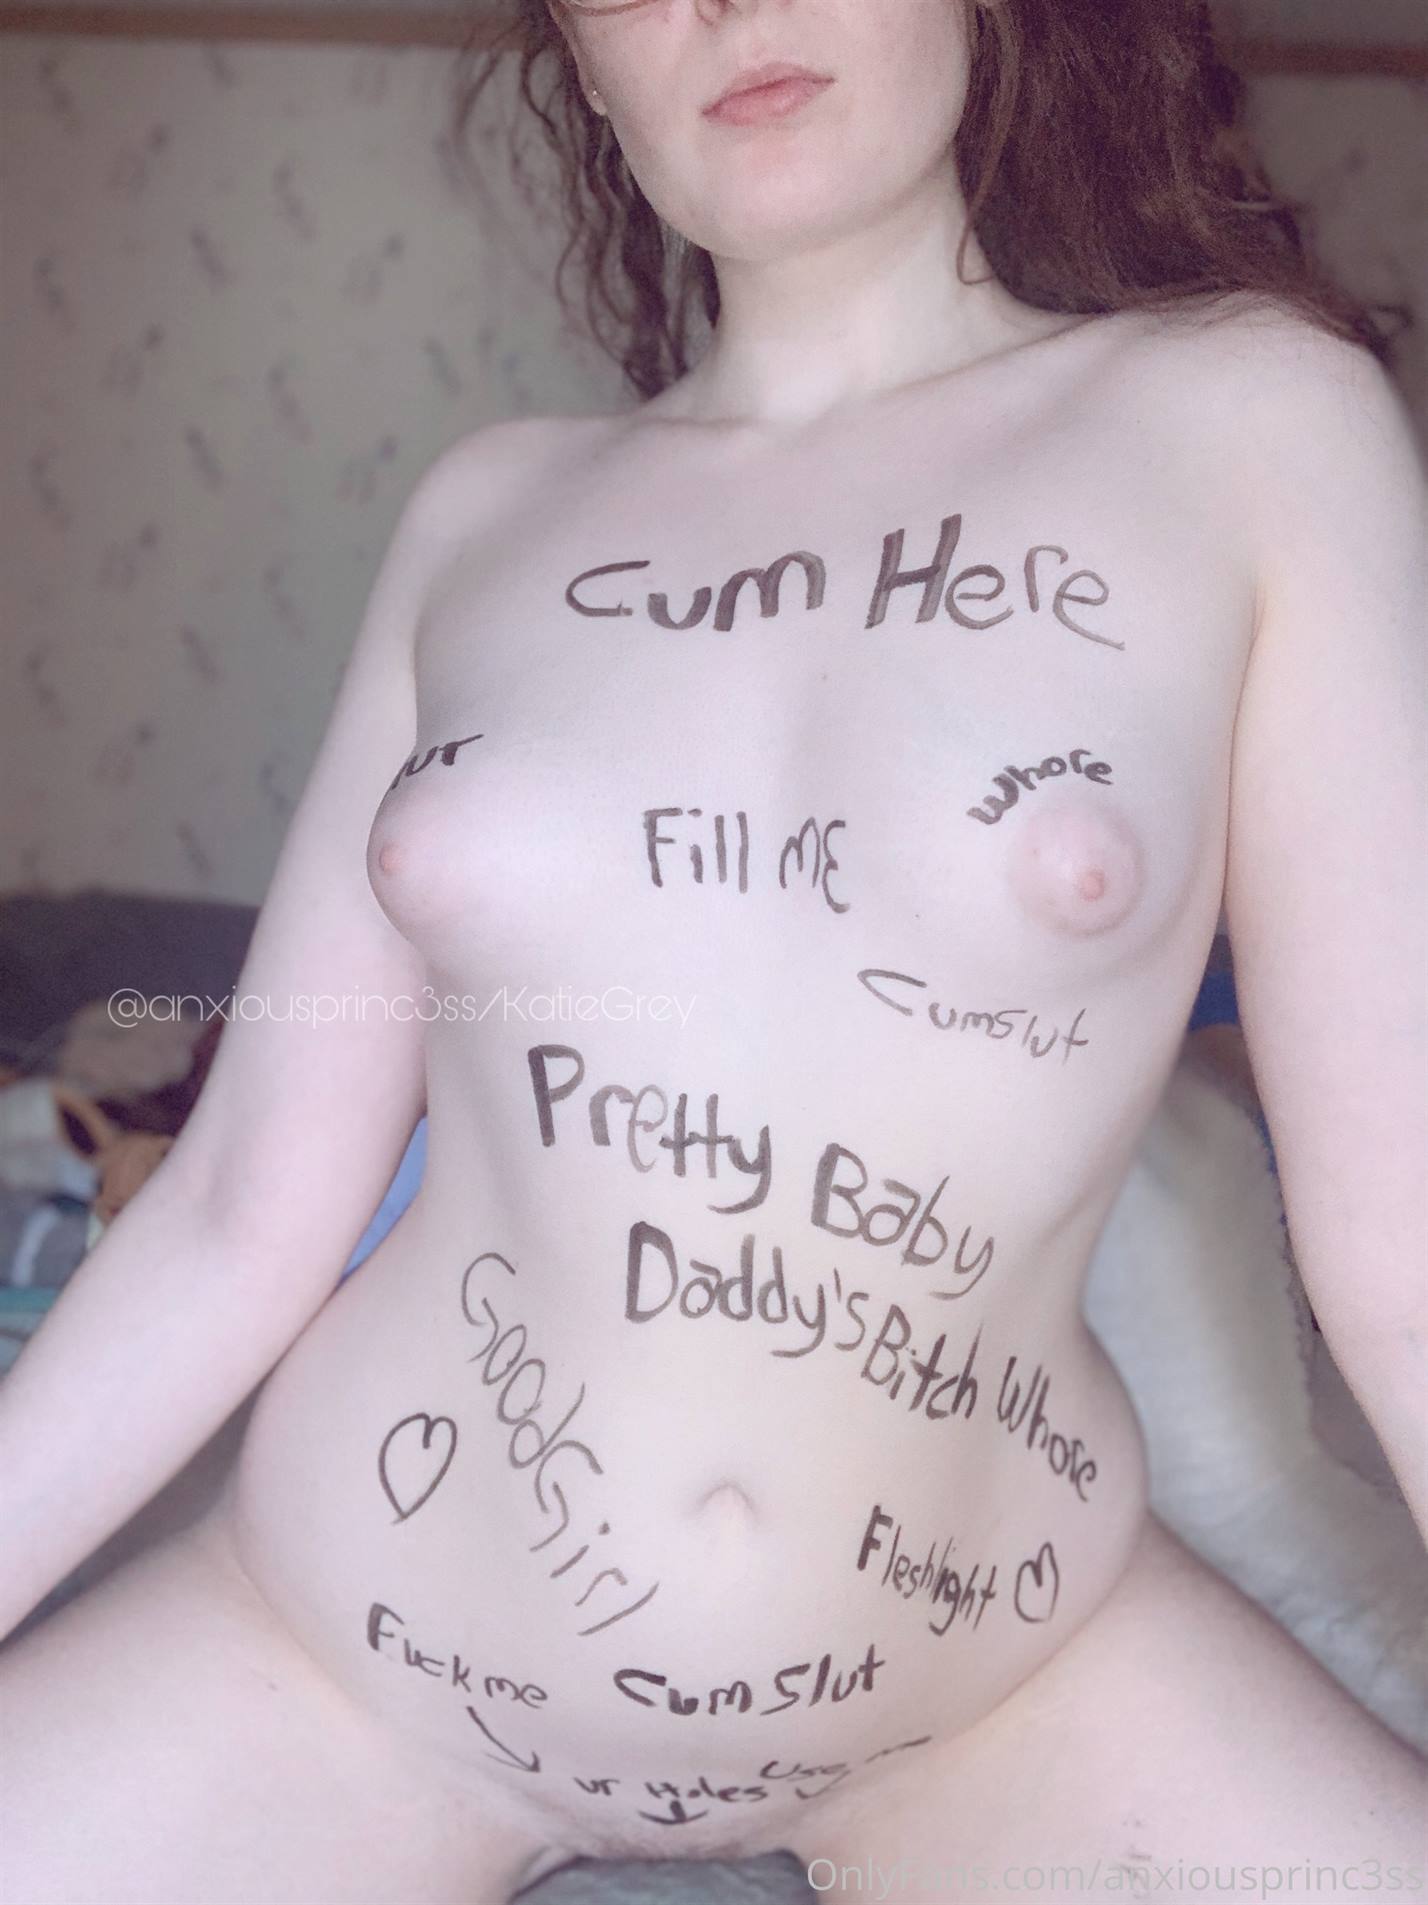 Cum Here
ur
Whore
Fill ME
Cumslut
@anxiousprinc3ss/KatieGrey
Pretty Baby
Daddy's Bitch Whore
Good Girl
Fleshlight
Fuck me
Cum Slut
ur Holes
Use me
OnlyFans.com/anxiousprinc3ss